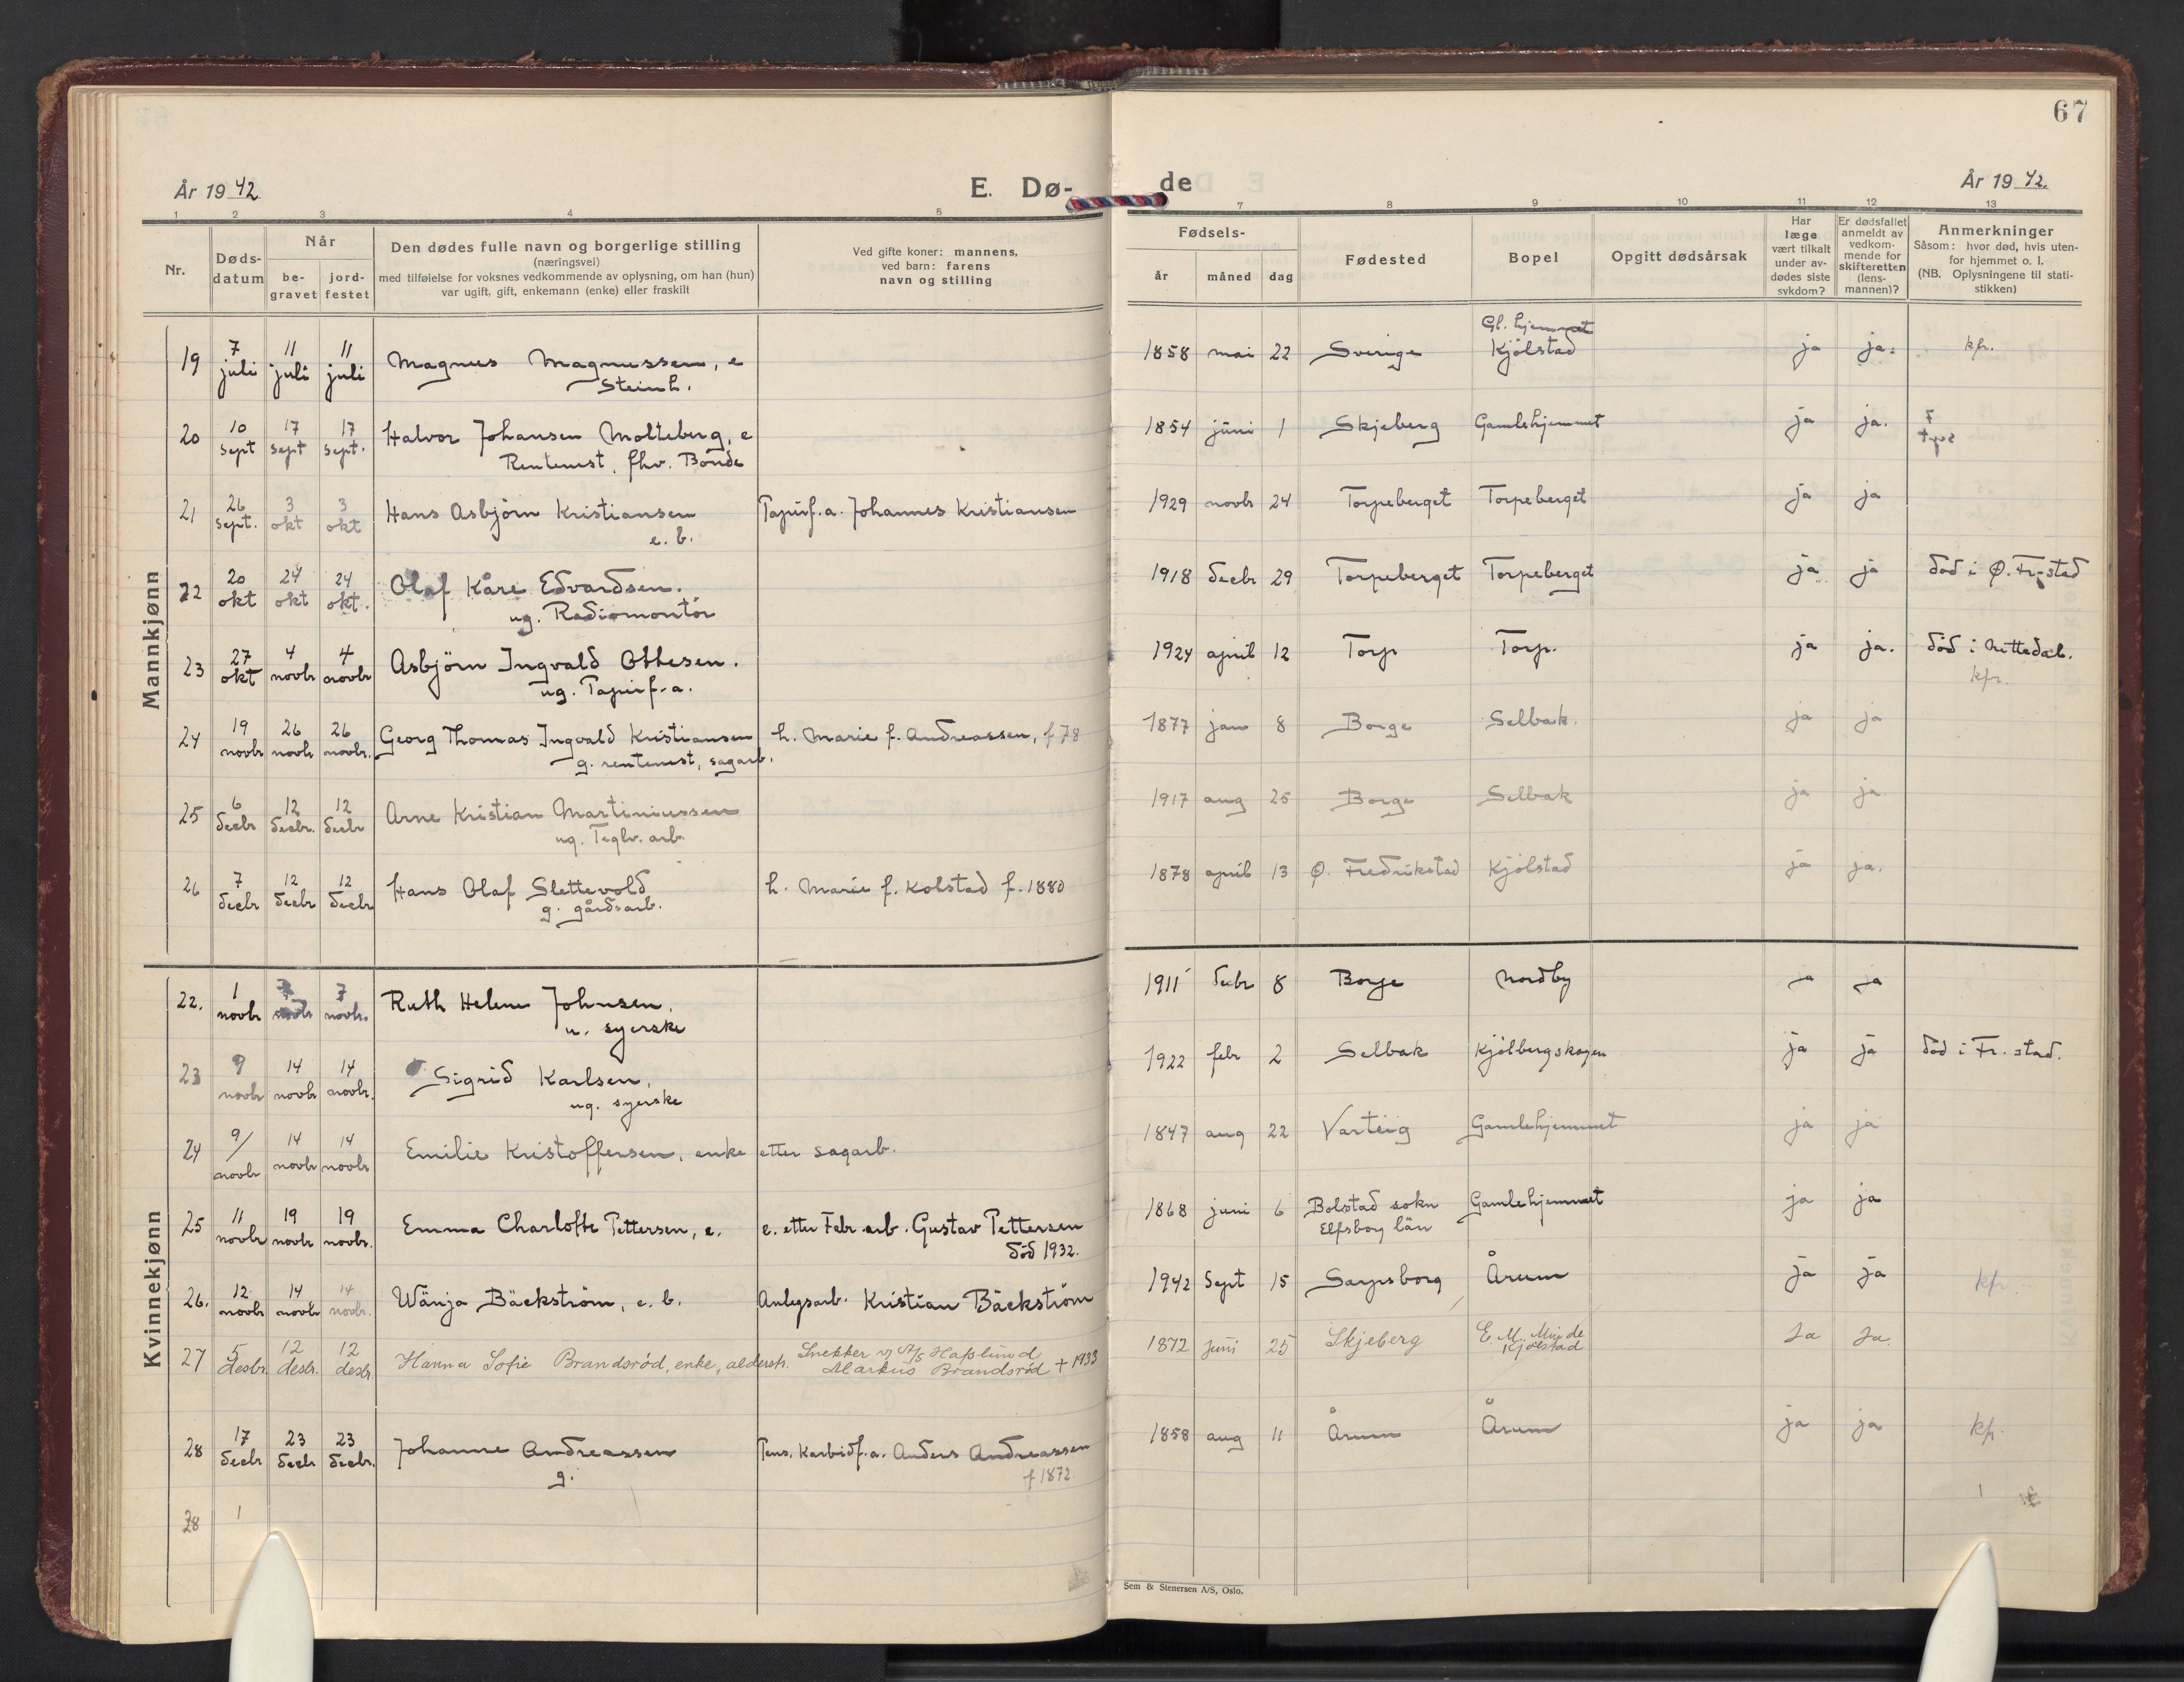 67
År 1942.
E. Dø-
de
År 1942.
1 2 3 4 5 7 8 9 10 11 12 13
Nr.
Døds-
datum
Når
be-
gravet
jord-
festet
Den dødes fulle navn og borgerlige stilling
(næringsvei)
med tilføielse for voksnes vedkommende av oplysning, om han (hun)
var ugift, gift, enkemann (enke) eller fraskilt
Ved gifte koner: mannens,
ved barn: farens
navn og stilling
Fødsels-
år måned dag
Fødested
Bopel
Opgitt dødsårsak
Har
læge
vært tilkalt
under av-
dødes siste
sykdom?
Er dødsfallet
anmeldt av
vedkom-
mende for
skifteretten
(lens-
mannen)?
Anmerkninger
Såsom: hvor død, hvis uten-
for hjemmet o. l.
(NB. Oplysningene til stati-
stikken)
Mannkjønn
19 7 juli 11 juli 11 juli Magnus Magnussen, e 1858 mai 22 Sverige Gl. hjemmet Kjölstad ja ja. kfr.
Steinh.
20 10 sept 17 sept 17 sept. Halvor Johansen Molteberg, e 1854 juni 1 Skjeberg Gamlehjemmet ja ja.
Rentenist, fhv. Bonde
21 26 sept. 3 okt 3 okt Hans Asbjörn Kristiansen Papirf.a. Johannes Kristiansen 1929 novbr 24 Torpeberget Torpeberget ja ja
e. b.
22 20 okt 24 okt 24 okt. Olaf Kåre Edvardsen. 1918 decbr 29 Torpeberget Torpeberget ja ja död i Ø. Fr-stad
ug. Radiomontör
23 27 okt 4 novbr 4 novbr Asbjörn Ingvald Ottesen. 1924 april 12 Torp Torp. ja ja. död i Nittedal.
ug. Papirf.a. kfr.
24 19 novbr 26 novbr 26 novbr. Georg Thomas Ingvald Kristiansen h. Marie f. Andreassen, f 78 1877 jan 8 Borge Selbak. ja ja
g. rentenist, sagarb.
25 6 decbr 12 decbr. 12 decbr Arne Kristian Martiniussen 1917 aug 25 Borge Selbak ja ja
ug. Teglv. arb.
26 7 decbr 12 decbr 12 decbr Hans Olaf Slettevold h. Marie f. Kolstad f. 1880 1878 april 13 Ø. Fredrikstad Kjölstad ja ja.
g. gårdsarb.
Kvinnekjønn
22. 1 novbr 7 novbr 7 novbr. Ruth Helene Johnsen. 1911 decbr 8 Borge Nordby ja ja
u. syerske
23 9 novbr 14 novbr 14 novbr. Sigrid Karlsen. 1922 febr 2 Selbak Kjölbergskogen ja ja död i Fr. stad.
ug. syerske
24 9/ novbr 14 novbr 14 novbr Emilie Kristoffersen, enke etter sagarb. 1847 aug 22 Varteig Gamlehjemmet ja ja
25 11 novbr 19 novbr 19 novbr. Emma Charlotte Pettersen, e. e. etter Fabr. arb. Gustav Pettersen 1868 juni 6 Bolstad sokn Gamlehjemmet ja ja
död 1932. Elfsborg län
26. 12 novbr 14 novbr 14 novbr. Wänja Bäckström, e. b. Anlegsarb. Kristian Bäckström 1942 Sept 15 Sarpsborg Årum ja ja kfr.
27 5 desbr. 12 desbr. 12 desbr. Hanna Sofie Brandsröd, enke, alderstr. Snekker v/ A/S Hafslund 1872 juni 25 Skjeberg E. M. Minde Ja Ja.
Markus Brandsröd + 1933 Kjölstad
28 17 decbr 23 decbr 23 decbr. Johanne Andreassen Pens. Karbidf.a. Anders Andreassen 1858 aug 11 Årum Årum ja ja kfr.
g. f 1872.
28 1
Sem & Stenersen A/S, Oslo.